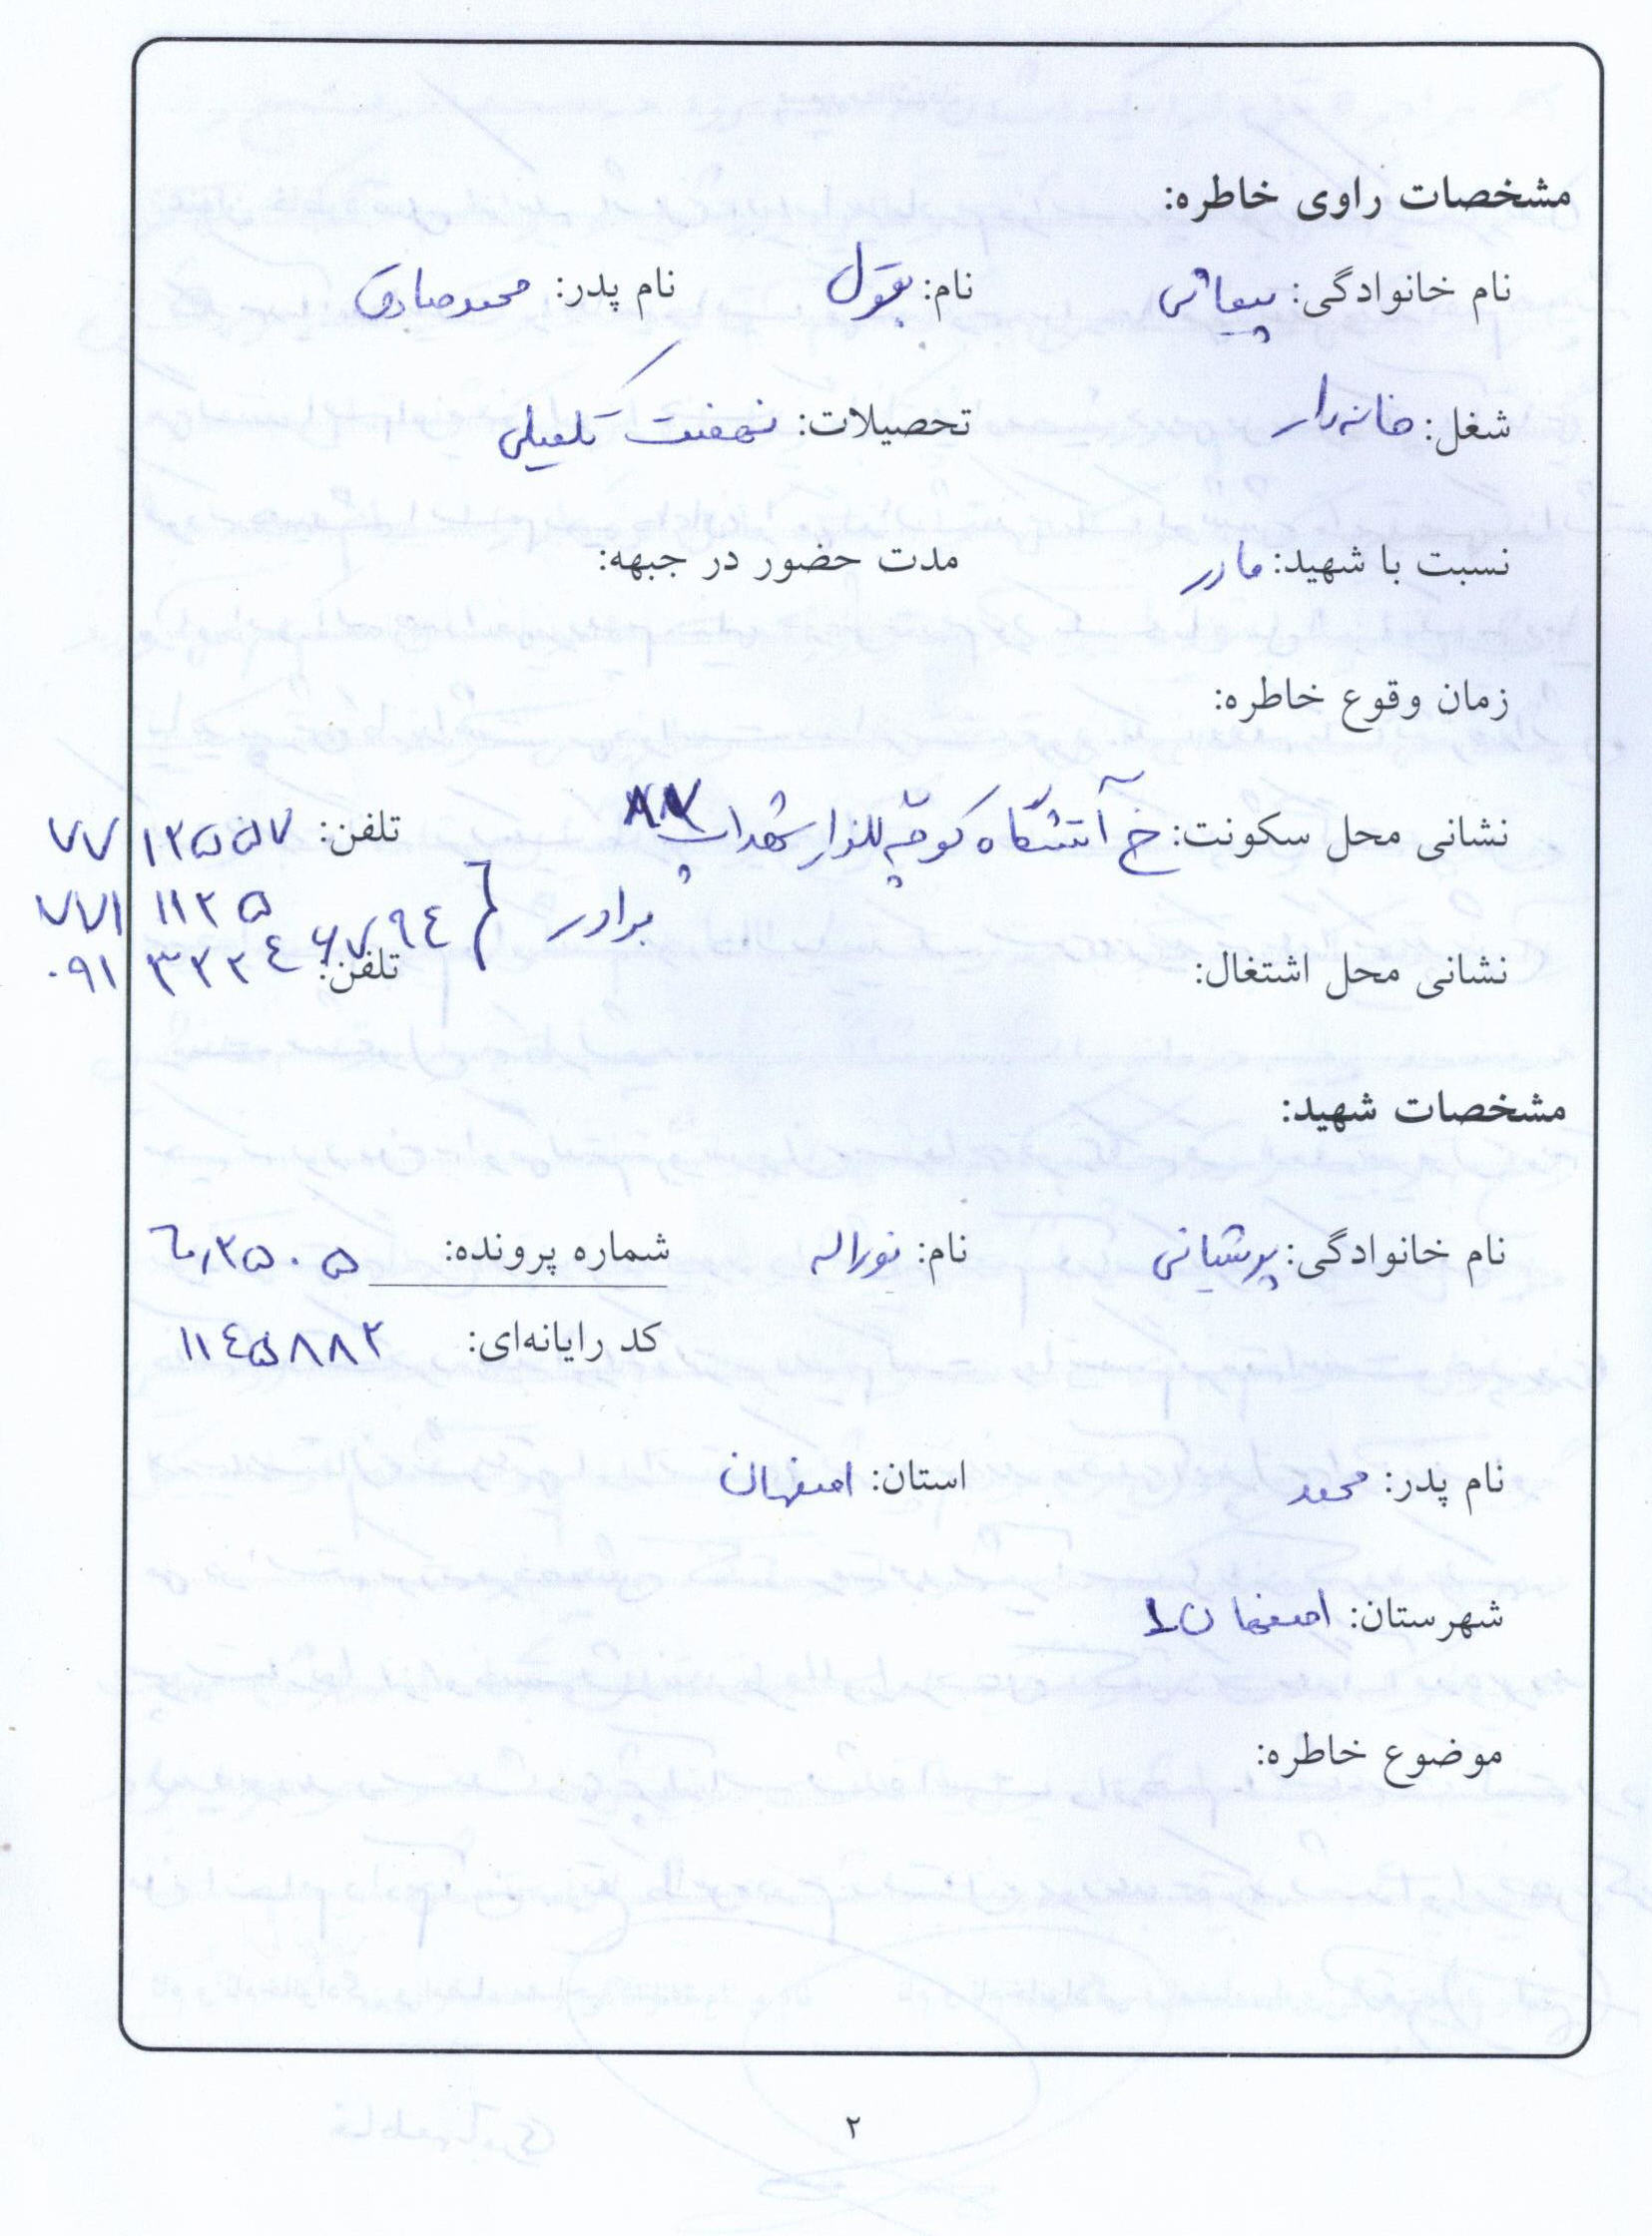 مشخصات راوی خاطره:
نام خانوادگی: پیمانی نام: بتول نام پدر: محمدصادق
شغل: خانه‌دار تحصیلات: نهضت تکمیلی
نسبت با شهید: مادر مدت حضور در جبهه:
زمان وقوع خاطره:
نشانی محل سکونت: خ آتشگاه کوی گلزار شهدا پ تلفن: ۷۷۱۲۵۵۷
برادر { ۷۷۱۱۱۲۵
نشانی محل اشتغال: تلفن: ۰۹۱۳۲۲۴۶۷۹۴
مشخصات شهید:
نام خانوادگی: پرشیانی نام: نوراله شماره پرونده: ۶۰۲۵۰۵
کد رایانه‌ای: ۱۱۴۵۸۸۲
نام پدر: محمد استان: اصفهان
شهرستان: اصفهان ۱
موضوع خاطره:
۲